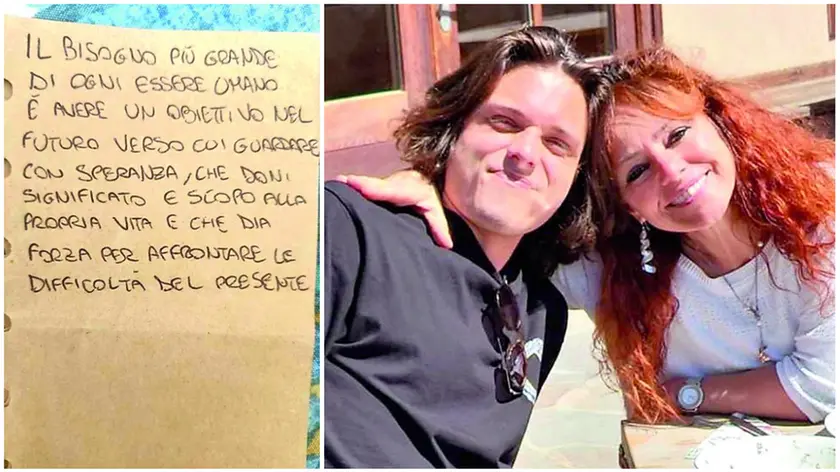 IL BISOGNO PIÙ GRANDE
DI OGNI ESSERE UMANO
È AVERE UN OBIETTIVO NEL
FUTURO VERSO CUI GUARDARE
CON SPERANZA, CHE DONI
SIGNIFICATO E SCOPO ALLA
PROPRIA VITA E CHE DIA
FORZA PER AFFRONTARE LE
DIFFICOLTÀ DEL PRESENTE